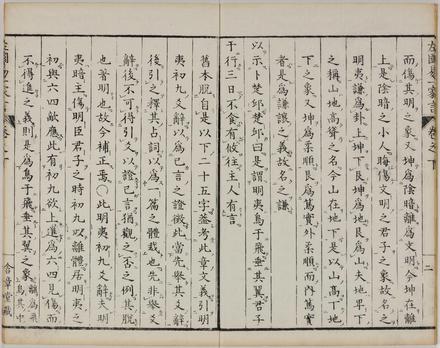 左國易一家言 卷之下
而傷其明之象又坤爲陰暗離爲文明今坤在離
上是陰暗之小人晦傷文明之君子之象故名之
明夷謙爲卦上坤下艮坤爲地艮爲山夫地卑下
之稱山地高聳之名今山在地下是以山高下地
下之象又坤爲柔順艮爲篤實外柔順而內篤實
者是爲謙讓之義故名之謙
以示卜楚邱楚邱曰是謂明夷鳥于飛垂其翼君子
于行三日不食有攸往主人有言
舊本脫自是以下二十五字蓋考此章文義引明
夷初九爻辭以爲己言之證徵此當先舉其爻辭
後引之釋其占詞以爲一篇之體裁也先非舉爻
辭後不可得引爻以證己言猶觀之否之例其脫
也著明也故今補正焉○此明夷初九爻辭夫明
夷暗主傷明臣君子之時初九以離體居明夷之
初與六四敵應此有初九欲上進爲六四見傷而
不得進之義則是爲鳥于飛垂其翼之象
離爲飛鳥其中
二
含章堂藏